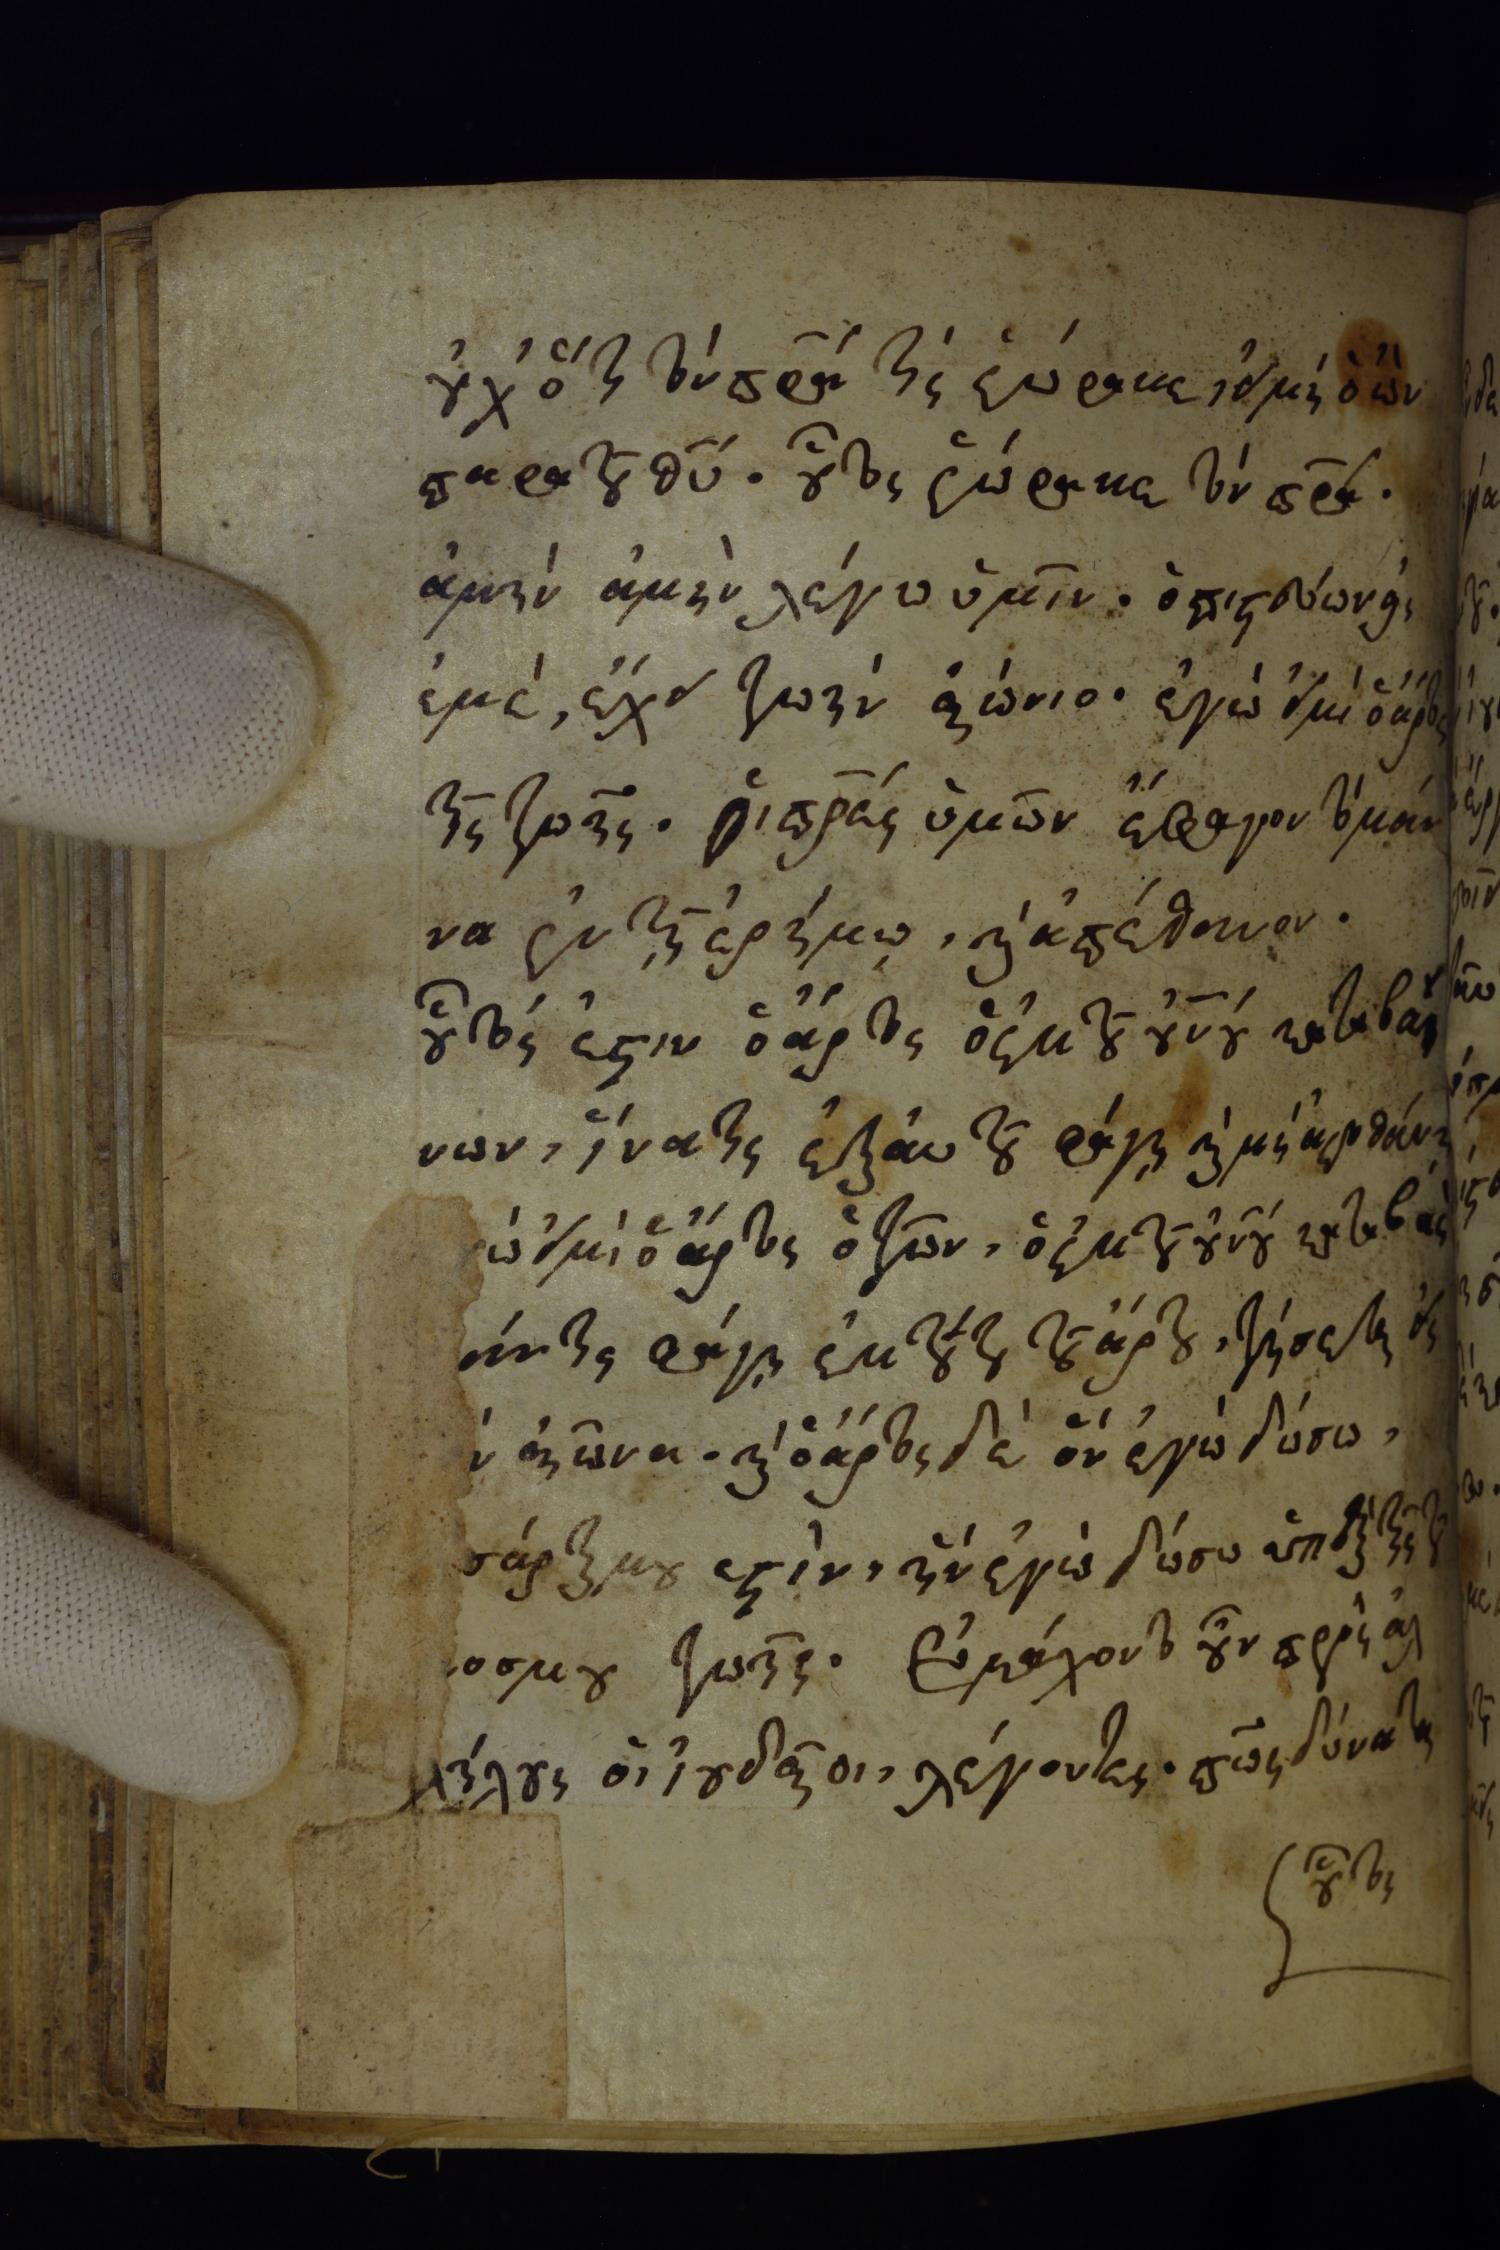 οὐχ ὅτι τὸν πρ̅α τίς ἑώρακε, εἰμὴ ὁ ὢν
παρα τοῦ θυ̅. οὗτος ἑώρακε τὸν πρ̅α.
ἀμὴν ἀμὴν λέγω ὑμῖν. ὁ πιστεύων εἰς
ἐμὲ, ἔχει ζωὴν αἰώνιο. ἐγώ εἰμι ὁ ἄρτος
τῆς ζωῆς. οἱ πρ̅ες ὑμῶν ἔφαγον τὸ μάν
να ἐν τῇ ἐρήμῳ, καὶ ἀπέθανον.
οὗτός ἐστιν ὁ ἄρτος ὁ ἐκ τοῦ οὐνοῦ καταβαί
νων, ἵνα τις ἐξ αὐτοῦ φάγῃ καὶ μὴ ἀποθάνῃ
γώ εἰμι ὁ ἄρτος ὁ ζῶν, ὁ ἐκ τοῦ οὐνοῦ καταβάς
άν τις φάγῃ ἐκ τούτου τοῦ ἄρτου, ζήσεται εἰς
ν αἰῶνα. καὶ ὁ ἄρτος δὲ ὃν ἐγὼ δώσω,
σάρξ μου ἐστὶν, ἣν ἐγὼ δώσω ὑπὲρ τῆς τοῦ
οσμου ζωῆς. Ἐμάχοντο οὖν πρὸς ἀλ
λήλους οἱ ἰουδαῖοι, λέγοντες. πῶς δύναται
οὗτος